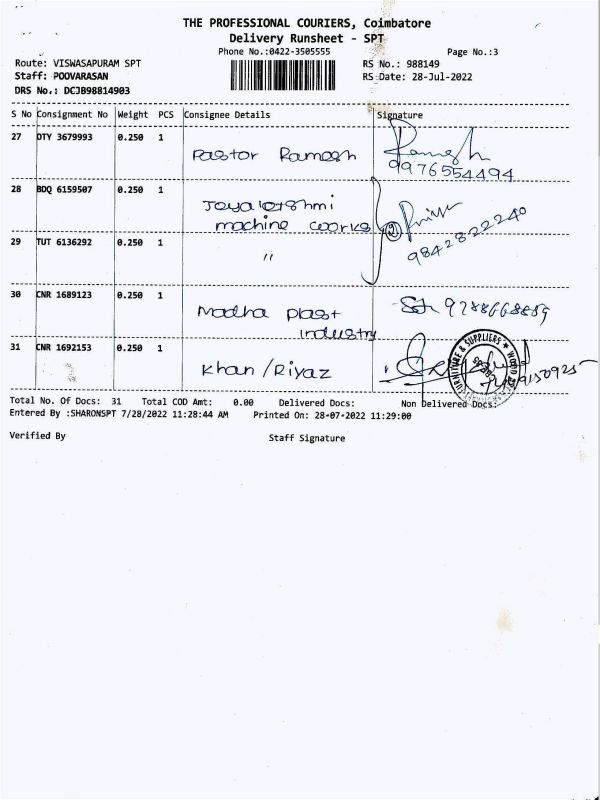 THE PROFESSIONAL COURIERS, Coimbatore
Delivery Runsheet - SPT
Phone No.:0422-3505555 Page No.:3
Route: VISWASAPURAM SPT RS No.: 988149
Staff: POOVARASAN RS Date: 28-Jul-2022
DRS No.: DCJB98814903
S No Consignment No Weight PCS Consignee Details Signature
27 DTY 3679993 0.250 1 Pastor Ramesh Ramesh
9976554494
28 BDQ 6159507 0.250 1 Jeyalakshmi
machine works 2
9842822240
29 TUT 6136292 0.250 1 "
30 CNR 1689123 0.250 1 Madha plast
industry
31 CNR 1692153 0.250 1 Khan/Riyaz
Total No. Of Docs: 31 Total COD Amt: 0.00 Delivered Docs: Non Delivered Docs:
Entered By :SHARONSPT 7/28/2022 11:28:44 AM Printed On: 28-07-2022 11:29:00
Verified By Staff Signature